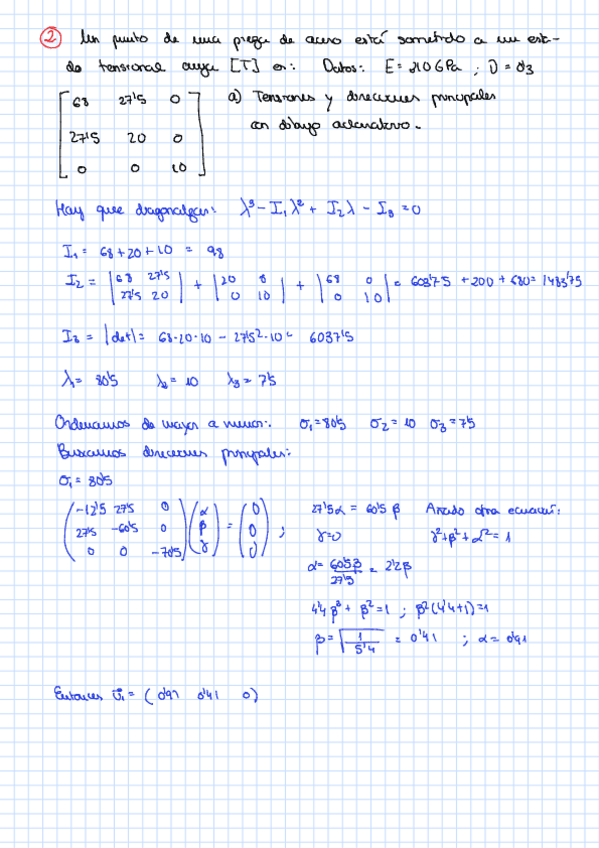 ② Un punto de una pieza de acero está sometido a un est-
do tensional cuya [T] es: Datos: E = 210 GPa ; ν = 0'3
[ 68 27'5 0 ] a) Tensiones y direcciones principales
con dibujo aclarativo.
27'5 20 0
0 0 10
Hay que diagonalizar: λ³ - I₁λ² + I₂λ - I₃ = 0
I₁ = 68 + 20 + 10 = 98
I₂ = |68 27'5; 27'5 20| + |20 0; 0 10| + |68 0; 0 10| = 603'75 + 200 + 680 = 1483'75
I₃ = |det| = 68·20·10 - 27'5²·10 = 6037'5
λ₁ = 80'5 λ₂ = 10 λ₃ = 7'5
Ordenamos de mayor a menor: σ₁ = 80'5 σ₂ = 10 σ₃ = 7'5
Buscamos direcciones principales:
σ₁ = 80'5
(-12'5 27'5 0; 27'5 -60'5 0; 0 0 -70'5) (α; β; γ) = (0; 0; 0) ;
27'5α = 60'5 β Añado otra ecuación:
γ = 0 γ² + β² + α² = 1
α = 60'5β / 27'5 = 2'2β
4'4 β² + β² = 1 ; β²(4'4+1) = 1
β = √(1 / 5'4) = 0'41 ; α = 0'91
Entonces v̄₁ = ( 0'91 0'41 0 )